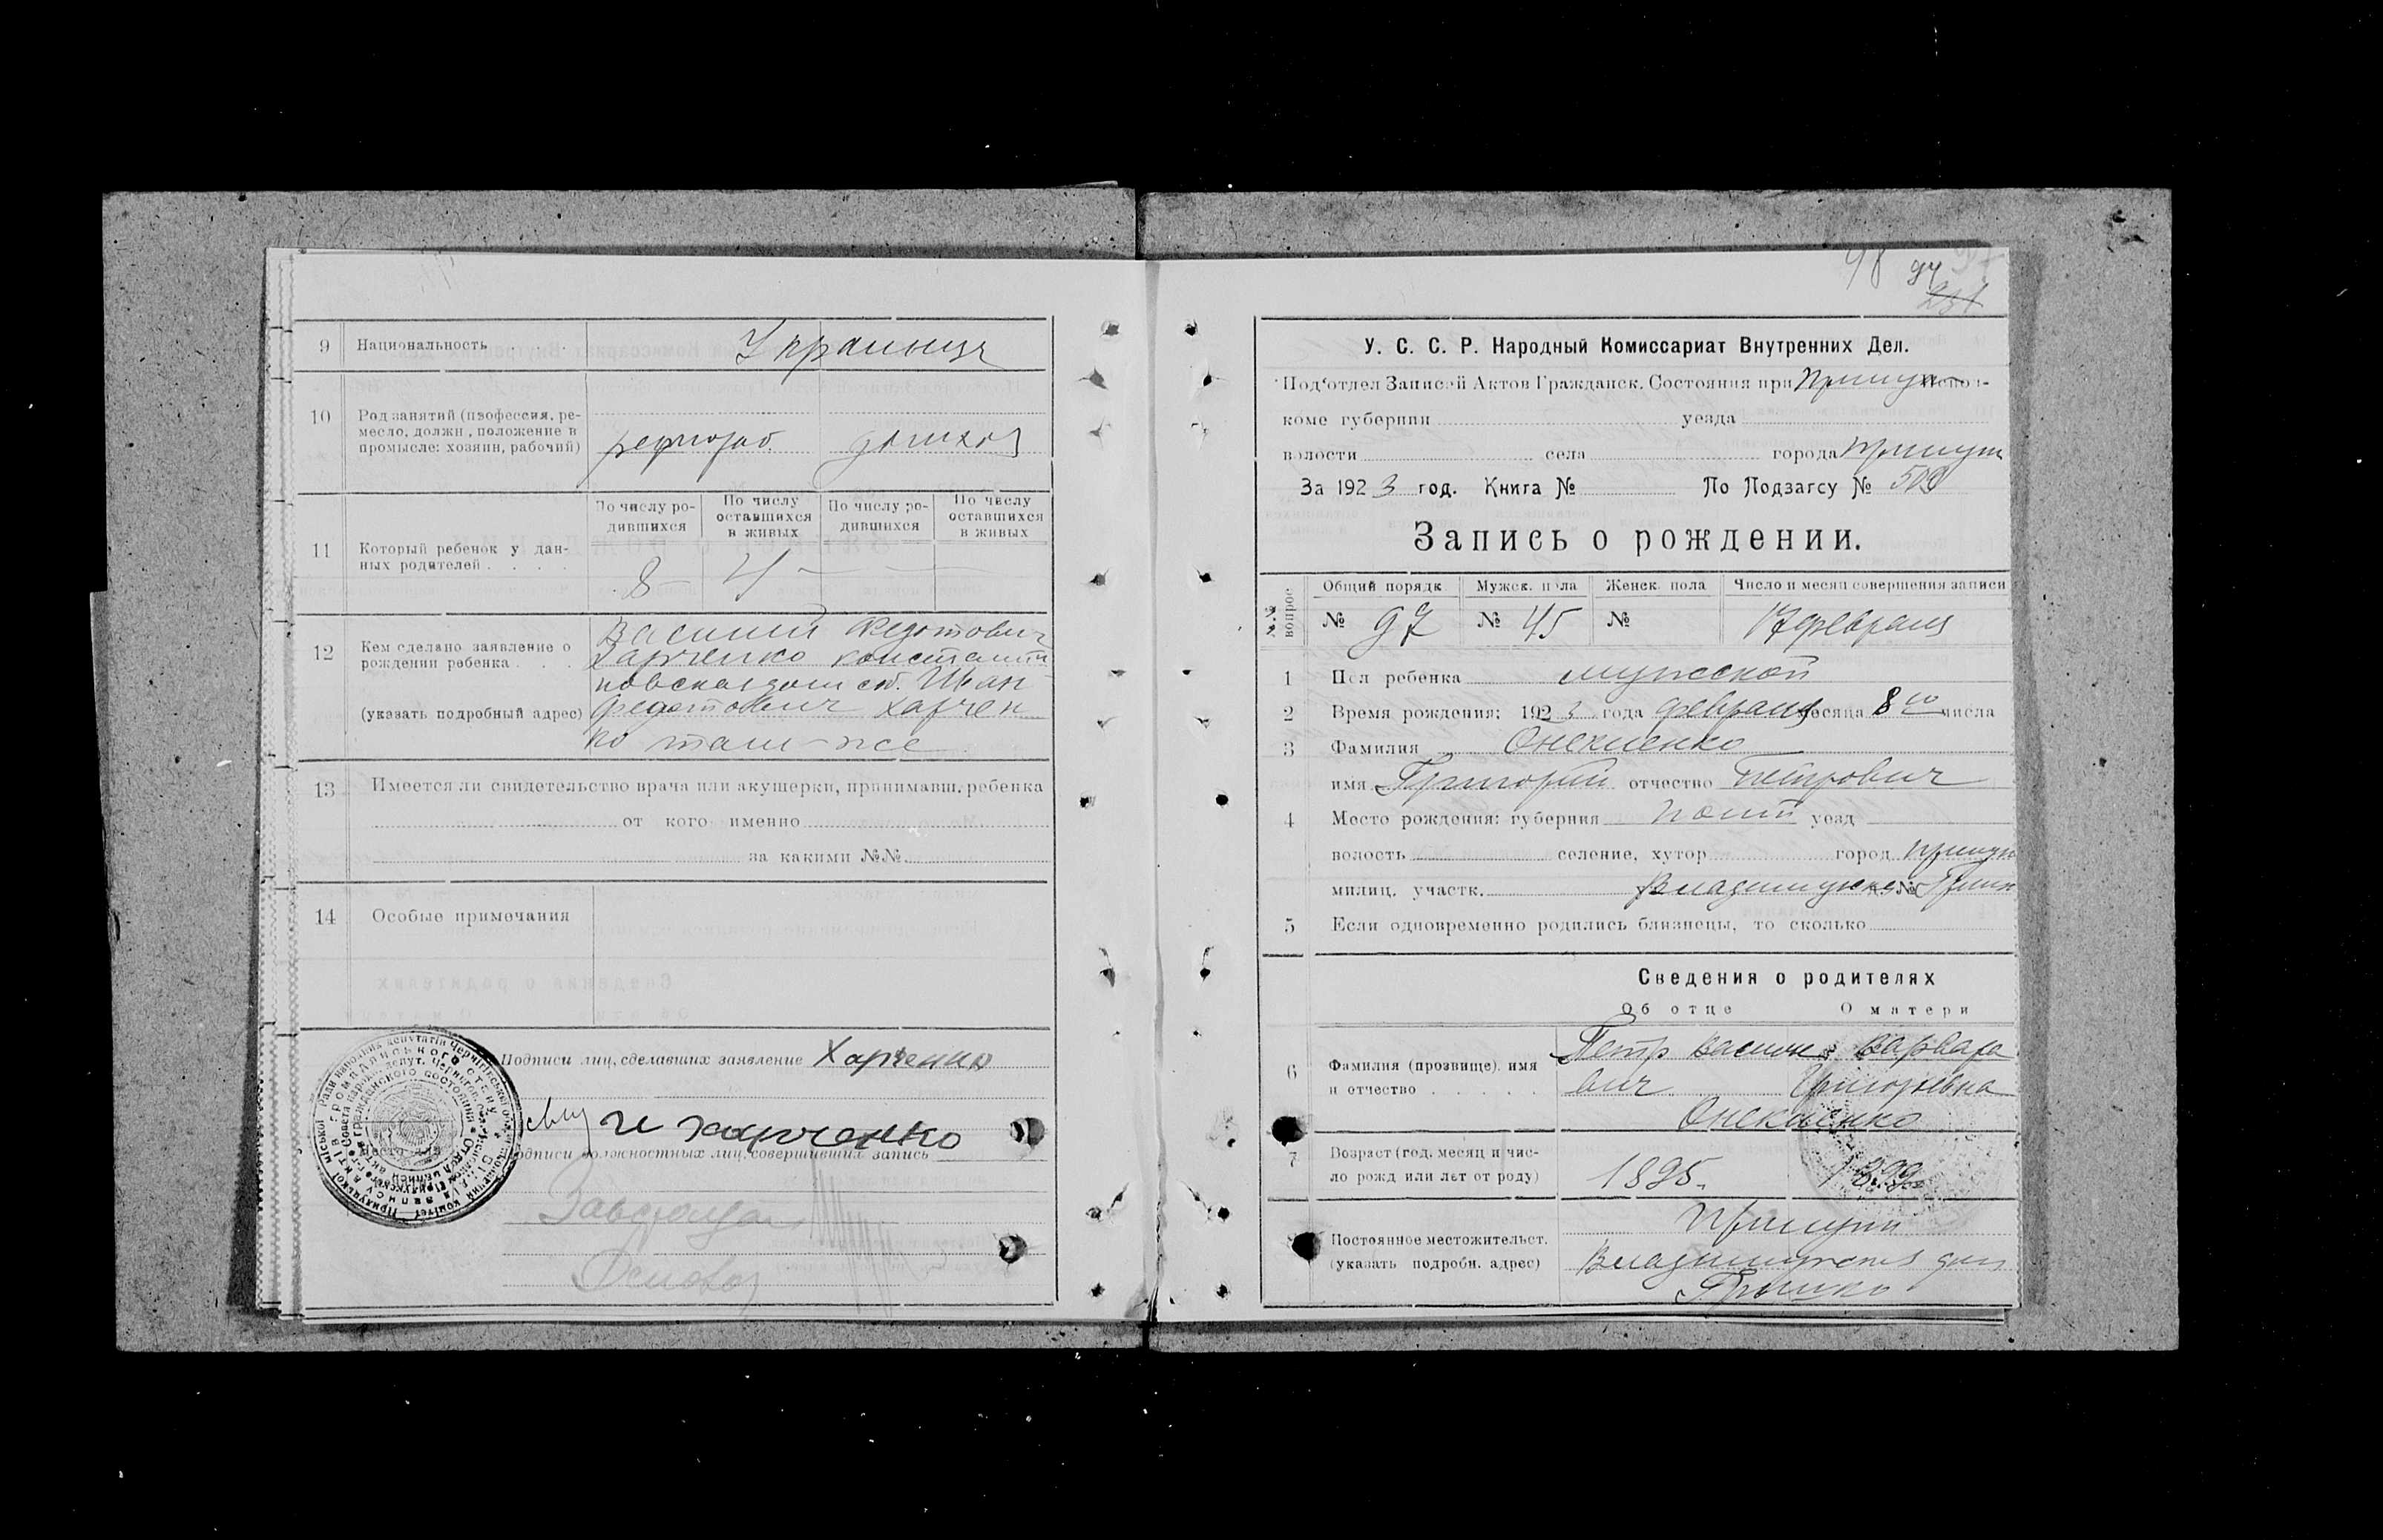 9 Национальность . . . Украинцы
10 Род занятий (профессия, ре-
месло, должн., положение в
промысле: хозяин, рабочий) домхоз
По числу ро-
дившихся
По числу
оставшихся
в живых
По числу ро-
дившихся
По числу
оставшихся
в живых
11 Который ребенок у дан-
ных родителей . . . . 8 – 4 – — —
12 Кем сделано заявление о
рождении ребенка . . .
(указать подробный адрес)
Василий Федотович
Харченко Константи
новская дом соб. Иван
Федотович Харчен
ко там-же
13 Имеется ли свидетельство врача или акушерки, принимавш. ребенка
от кого именно
за какими №№
14 Особые примечания
Подписи лиц, сделавших заявление Харченко
И Харченко
Подписи должностных лиц, совершивших запись
Завед
98 94
231
У. С. С. Р. Народный Комиссариат Внутренних Дел.
Под'отдел Записей Актов Гражданск. Состояния при Прилук Испол-
коме губернии уезда
волости села города Прилуки
За 1923 год. Книга № По Подзагсу № 502
Запись о рождении.
№№ вопрос
Общий порядк Мужск. пола Женск. пола Число и месяц совершения записи
№ 97 № 45 № 17 февраля
1 Пол ребенка мужской
2 Время рождения: 1923 года февраля месяца 8го числа
3 Фамилия Онекиенко
имя Григорий отчество Петрович
4 Место рождения: губерния Полт уезд
волость селение, хутор город Прилуки
милиц. участк. Владимирская №
5 Если одновременно родились близнецы, то сколько
Сведения о родителях
Об отце О матери
6 Фамилия (прозвище), имя
и отчество . . . . .
Петр Василье Варвара
вич Григорьевна
Онекиенко
7 Возраст (год, месяц и чис-
ло рожд. или лет от роду) 1895. 1899
Постоянное местожительст.
(указать подробн. адрес)
Прилуки
Владимирская дом
Гришко